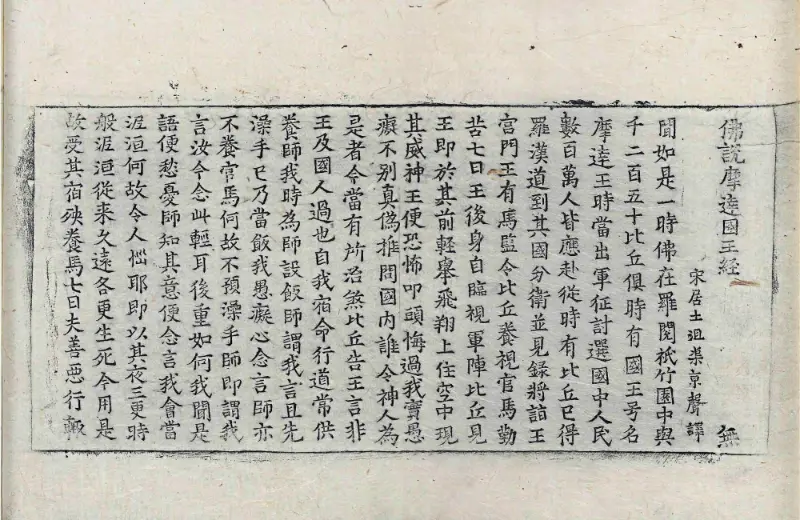 佛說摩達國王經 無
宋居士沮渠京聲譯
聞如是一時佛在羅閱祇竹園中與
千二百五十比丘俱時有國王号名
摩達王時當出軍征討選國中人民
數百萬人皆應赴從時有比丘已得
羅漢道到其國分衛並見錄將詣王
宮門王有馬監令比丘養視官馬勤
苦七日王後身自臨視軍陣比丘見
王即於其前輕舉飛翔上住空中現
其威神王便恐怖叩頭悔過我實愚
癡不別真偽推問國內誰令神人為
是者今當有所治煞比丘告王言非
王及國人過也自我宿命行道常供
養師我時為師設飯師謂我言且先
澡手已乃當飯我愚癡心念言師亦
不養官馬何故不預澡手師即謂我
言汝今念此輕耳後重如何我聞是
語便愁憂師知其意便念言我會當
泥洹何故令人惱耶即以其夜三更時
般泥洹從来久遠各更生死今用是
故受其宿殃養馬七日夫善惡行輙